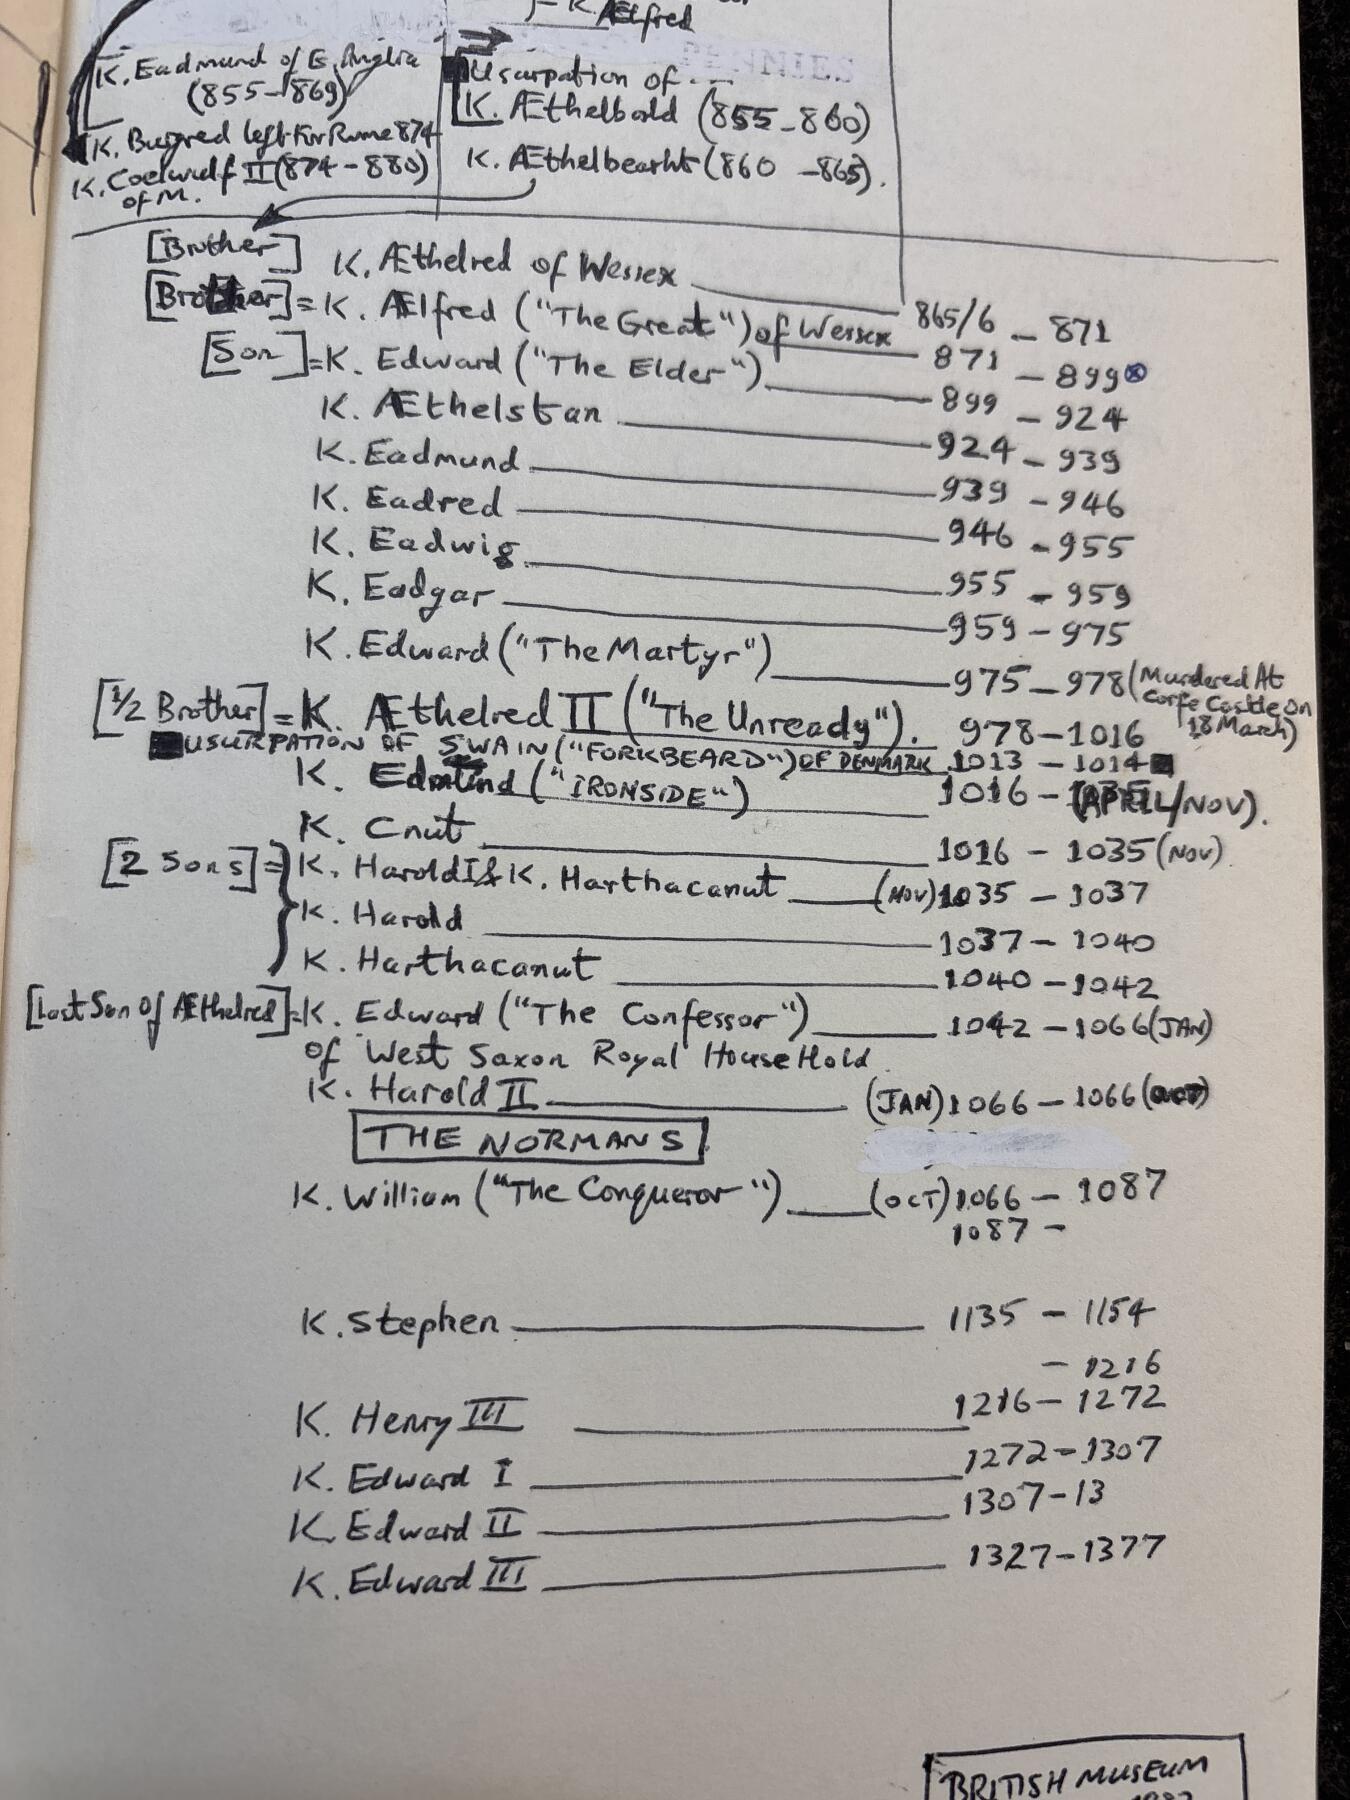 K. Ælfred
K. Eadmund of E. Anglia
(855-869)
K. Burgred left for Rome 874
K. Coelwulf II (874-880)
of M.
Usurpation of...
K. Æthelbald (855-860)
K. Æthelbearht (860-865).
[Brother] K. Æthelred of Wessex 865/6 - 871
[Brother] = K. Ælfred ("The Great") of Wessex 871 - 899
[Son] = K. Edward ("The Elder") 899 - 924
K. Æthelstan 924 - 939
K. Eadmund 939 - 946
K. Eadred 946 - 955
K. Eadwig 955 - 959
K. Eadgar 959 - 975
K. Edward ("The Martyr") 975 - 978 (Murdered At
Corfe Castle On
18 March)
[1/2 Brother] = K. Æthelred II ("The Unready"). 978 - 1016
USURPATION OF SWAIN ("FORKBEARD") OF DENMARK 1013 - 1014
K. Edmund ("IRONSIDE") 1016 - (APRIL/NOV).
K. Cnut 1016 - 1035 (NOV)
[2 Sons] = K. Harold I & K. Harthacanut (NOV) 1035 - 1037
K. Harold 1037 - 1040
K. Harthacanut 1040 - 1042
[Last Son Of Æthelred] = K. Edward ("The Confessor") 1042 - 1066 (JAN)
of West Saxon Royal HouseHold
K. Harold II (JAN) 1066 - 1066 (OCT)
THE NORMANS
K. William ("The Conqueror") (OCT) 1066 - 1087
1087 -
K. Stephen 1135 - 1154
- 1216
K. Henry III 1216 - 1272
K. Edward I 1272 - 1307
K. Edward II 1307 - 13
K. Edward III 1327 - 1377
BRITISH MUSEUM